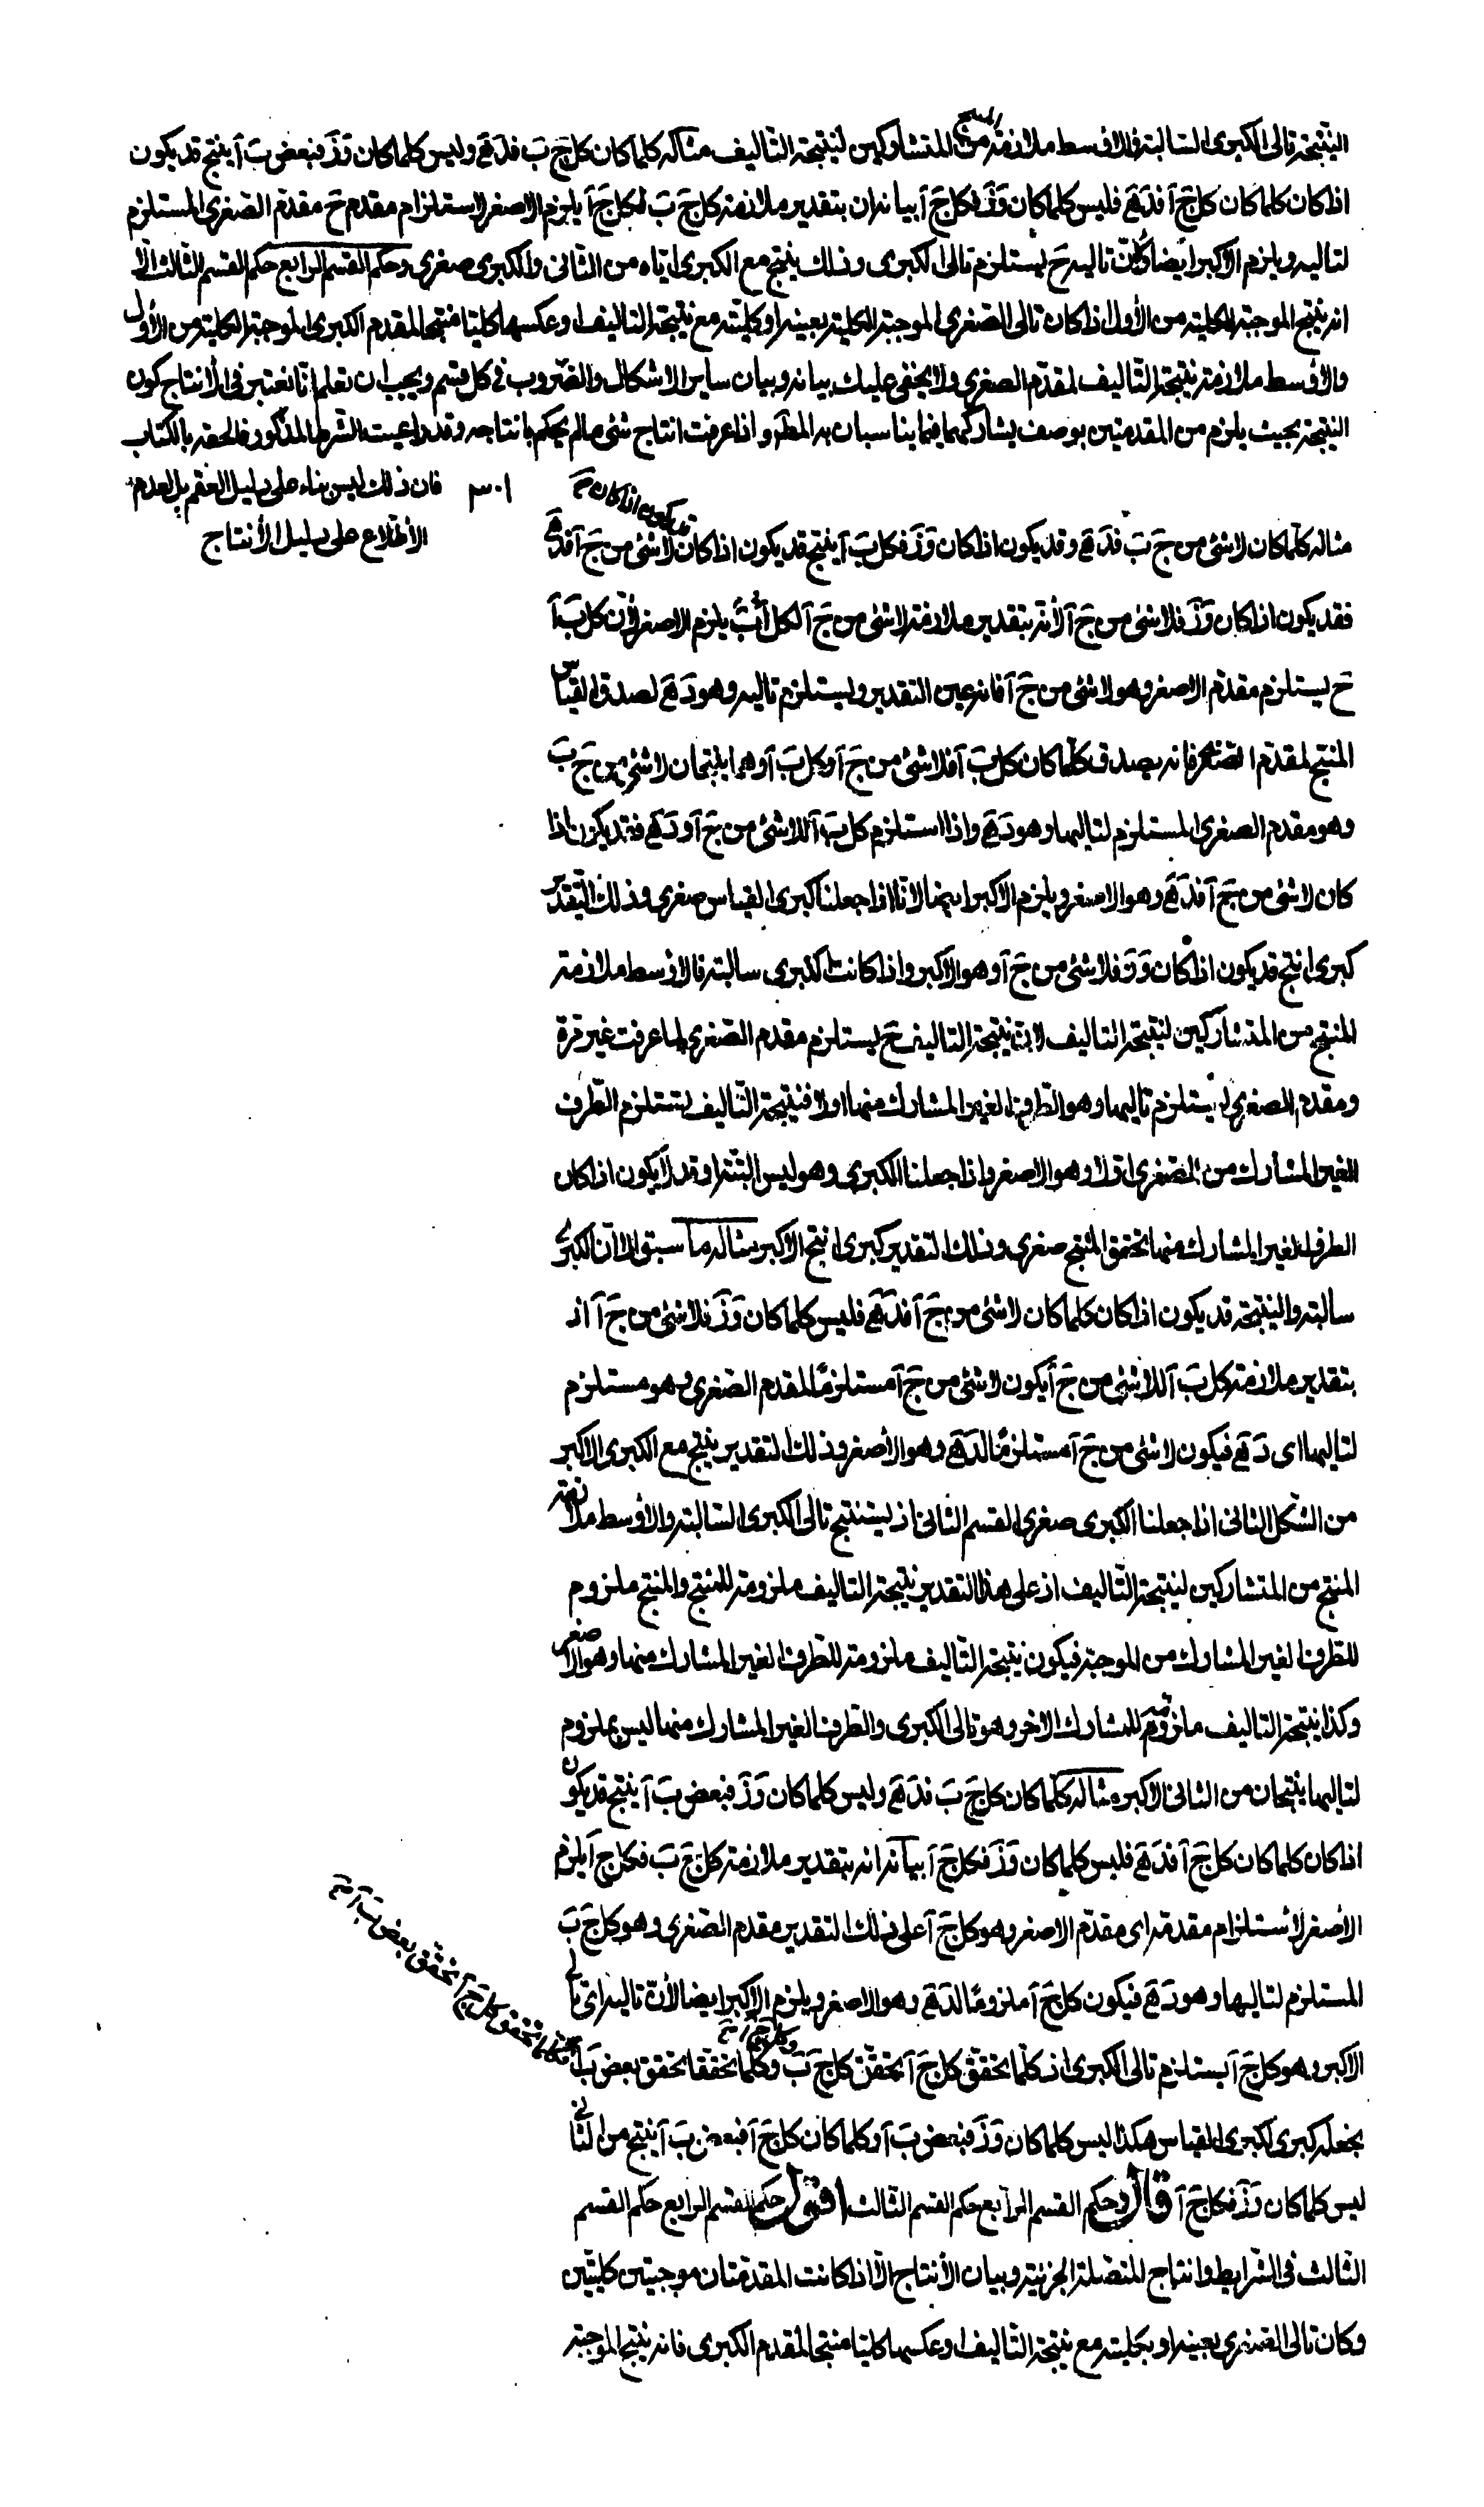 النتيجة تالى الكبرى السالبة والاوسط ملازمة من المتشاركين لنتيجة التأليف مثاله كلما كان كل جَ بَ فدَ هَ وليس كلما كان وَ زَ فبعض بَ آ ينتج قد يكون
اذا كان كلما كان كل جَ آ فدَ هَ فليس كلما كان وَ زَ فكل جَ آ بيانه ان بتقدير ملازمة كل جَ بَ لكل جَ آ يلزم الاصغر لاستلزام مقدم حَ مقدم الصغرى المستلزم
لتاليه ويلزم الاكبر ايضا لأنّ تاليه حَ يستلزم تالى الكبرى وذلك ينتج مع الكبرى اياه من الثانى والكبرى صغرى وحكم القسم الرابع حكم القسم الثالث الا
انه ينتج الموجبة الكلية من الأول اذا كان تالى الصغرى الموجبة الكلية بعينه او كليته مع نتيجة التأليف او عكسها كليا منتجا لمقدم الكبرى الموجبة الكلية من الأول
والأوسط ملازمة نتيجة التأليف لمقدم الصغرى ولا يخفى عليك بيانه وبيان ساير الاشكال والضروب فى كل قسم ويجب ان تعلم انا نعتبر فى الانتاج كون
النتيجة بحيث يلزم من المقدمتين بوصف يشاركهما فيما يناسبان به المطلوب واذا عرفت انتاج شئ مالم يحكم بانتاجه وقد راعيت الشرط المذكور فالحقه بالكتاب
فان ذلك ليس بناء على دليل العقم بل لعدم
الأطلاع على دليل الأنتاج
مثاله كلما كان لا شئ من جَ بَ فدَ هَ وقد يكون اذا كان وَ زَ فكل بَ آ ينتج قد يكون اذا كان لا شئ من جَ آ فدَ هَ
قد يكون اذا كان
فقد يكون اذا كان وَ زَ فلا شئ من جَ آ لأنه بتقدير ملازمة لا شئ من جَ آ لكل بَ آ يلزم الاصغر لأن كل بَ آ
حَ يستلزم مقدم الاصغر وهو لا شئ من جَ آ فانه عين التقدير ويستلزم تاليه وهو دَ هَ لصدق القياس
المنتج لمقدم الصغرى فانه يصدق كلما كان كل بَ آ فلا شئ من جَ آ وكل بَ آ وهما ينتجان لا شئ من جَ بَ
وهو مقدم الصغرى المستلزم لتاليها وهو دَ هَ واذا استلزم كل بَ آ للا شئ من جَ آ ودَ هَ فقد يكون اذا
كان لا شئ من جَ آ فدَ هَ وهو الاصغر ويلزم الاكبر ايضا لانا اذا جعلنا كبرى القياس صغرى وذلك التقدير
كبرى انتج قد يكون اذا كان وَ زَ فلا شئ من جَ آ وهو الأكبر واذا كانت الكبرى سالبة فالاوسط ملازمة
المنتج من المتشاركين لنتيجة التأليف لان نتيجة التأليف حَ يستلزم مقدم الصغرى لما عرفت غير مرة
ومقدم الصغرى يستلزم تاليها وهو الطرف الغير المشارك منها اولا فنتيجة التأليف تستلزم الطرف
الغير المشارك من الصغرى اولا وهو الاصغر واذا جعلنا الكبرى وهو ليس البتة او قد لا يكون اذا كان
الطرف الغير المشارك منها تحقق المنتج صغرى وذلك التقدير كبرى انتج الاكبر مثاله ما سبق الا ان الكبرى
سالبة والنتيجة قد يكون اذا كان كلما كان لا شئ من جَ آ فدَ هَ فليس كلما كان وَ زَ فلا شئ من جَ آ اذ
بتقدير ملازمة كل بَ آ للاشئ من جَ آ يكون لا شئ من جَ آ مستلزمًا لمقدم الصغرى وهو مستلزم
لتاليها اى دَ هَ فيكون لا شئ من جَ آ مستلزمًا لدَ هَ وهو الأصغر وذلك التقدير ينتج مع الكبرى الاكبر
من الشكل الثانى اذا جعلنا الكبرى صغرى القسم الثانى ان يستنتج تالى الكبرى السالبة والأوسط ملازمة
المنتج من المتشاركين لنتيجة التأليف اذ على هذا التقدير نتيجة التأليف ملزومة للمنتج والمنتج ملزوم
للطرف الغير المشارك من الموجبة فيكون نتيجة التأليف ملزومة للطرف الغير المشارك منها وهو الاصغر
وكذا نتيجة التأليف ملزومة للمشارك الاخر وهو تالى الكبرى والطرف الغير المشارك منها ليس بملزوم
لتاليها ينتجان من الثانى الاكبر مثاله كلما كان كل جَ بَ فدَ هَ وليس كلما كان وَ زَ فبعض بَ آ ينتج قد يكون
اذا كان كلما كان كل جَ آ فدَ هَ فليس كلما كان وَ زَ فكل جَ آ بيانه انه بتقدير ملازمة كل جَ بَ فكل جَ آ يلزم
الأصغر لأستلزام مقدمه اى مقدم الاصغر وهو كل جَ آ على ذلك التقدير مقدم الصغرى وهو كل جَ بَ
المستلزم لتاليها وهو دَ هَ فيكون كل جَ آ ملزومًا لدَ هَ وهو الاصغر ويلزم الاكبر ايضا لأنّ تاليه اى تالى
الاكبر وهو كل جَ آ يستلزم تالى الكبرى اذ كلما تحقق كل جَ آ تحقق كل جَ بَ وكلما تحققا تحقق بعض بَ آ
نجعله كبرى لكبرى القياس هكذا ليس كلما كان وَ زَ فبعض بَ آ وكلما كان كل جَ آ فبعض بَ آ ينتج من الثانى
ليس كلما كان وَ زَ فكل جَ آ قال وحكم القسم الرابع حكم القسم الثالث اقول حكم القسم الرابع حكم القسم
الثالث فى الشرايط وانتاج المتصلة الجزئية وبيان الأنتاج الا اذا كانت المقدمتان موجبتين كليتين
وكان تالى الصغرى بعينه او بكليته مع نتيجة التأليف او عكسها كليا منتجا لمقدم الكبرى فانه ينتج الموجبة